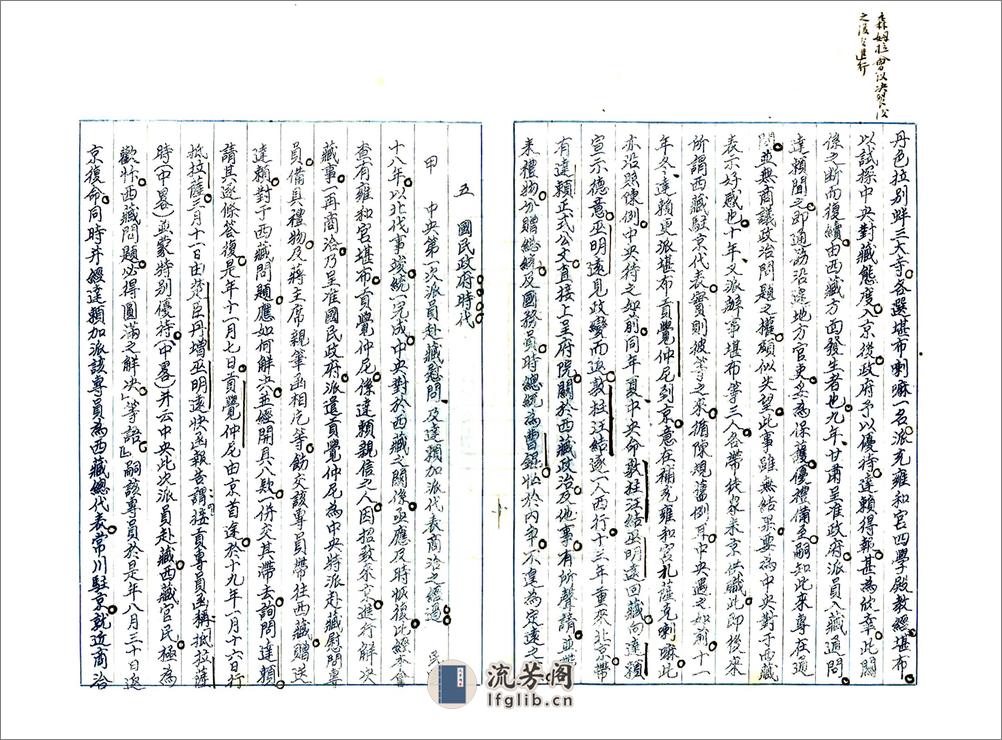 森姆拉會议决裂後
之復又進行
丹色拉別蚌三大寺各選堪布喇嘛一名派充雍和宮四學殿教經堪布
以試探中央對藏態度入京後政府予以優待達賴得報甚為欣幸此関
係之断而復續由西藏方面發生者也九年甘肅呈准政府派員入藏通問
達賴聞之即通荔沿途地方官吏妥為保護優禮備至嗣知此來專在通
問並無商議政治問題之權頗似失望此事雖無結果要為中央對于西藏
表示好感也十年又派辦事堪布等三人各帶徒衆来京供職此即後来
所謂西藏駐京代表實則彼等之来循陳規舊例耳中央遇之如前十一
年冬達賴更派堪布貢覺仲尼到京意在補充雍和宮札薩克喇嘛此
亦沿縣陳例中央待之如前同年夏中央命敦柱汪結巫明遠回藏向達賴
宣示德意巫明遠見政變而返敦柱汪結遂一人西行十三年重来北京帶
有達賴正式公文直接上呈府院關於西藏政治及他事有所聲請並帶
来禮物分贈總統及國務員時總統為曹錕忙於內爭不遑為定遠之
五 國民政府時代
甲 中央第一次派員赴藏慰問及達賴加派代表商洽之經過 民
十八年以北伐事竣統一完成中央對於西藏之關係亟應及時恢復此經本會
查有雍和宮堪布貢覺仲尼係達賴親信之人因招致来京進行解决
藏事一再商洽乃呈准國民政府派遣貢覺仲尼為中央特派赴藏慰問專
員備具禮物及蔣主席親筆函相片等飭交該專員帶往西藏贈送
達賴對于西藏問題應如何解决並經開具八欵一併交其帶去詢問達賴
請其逐條答復是年十一月七日貢覺仲尼由京首途於十九年一月十六日行
抵拉薩二月十一日由楚臣丹增巫明遠快函報告謂接貢專員函稱抵拉薩
時(中畧)並蒙特别優待(中畧)并云中央此次派員赴藏西藏官民極為
歡忭西藏問題必得圓滿之解决」等語」嗣該專員於是年八月三十日返
京復命同時并經達賴加派該專員為西藏總代表常川駐京就近商洽
流芳阁
lfglib.cn